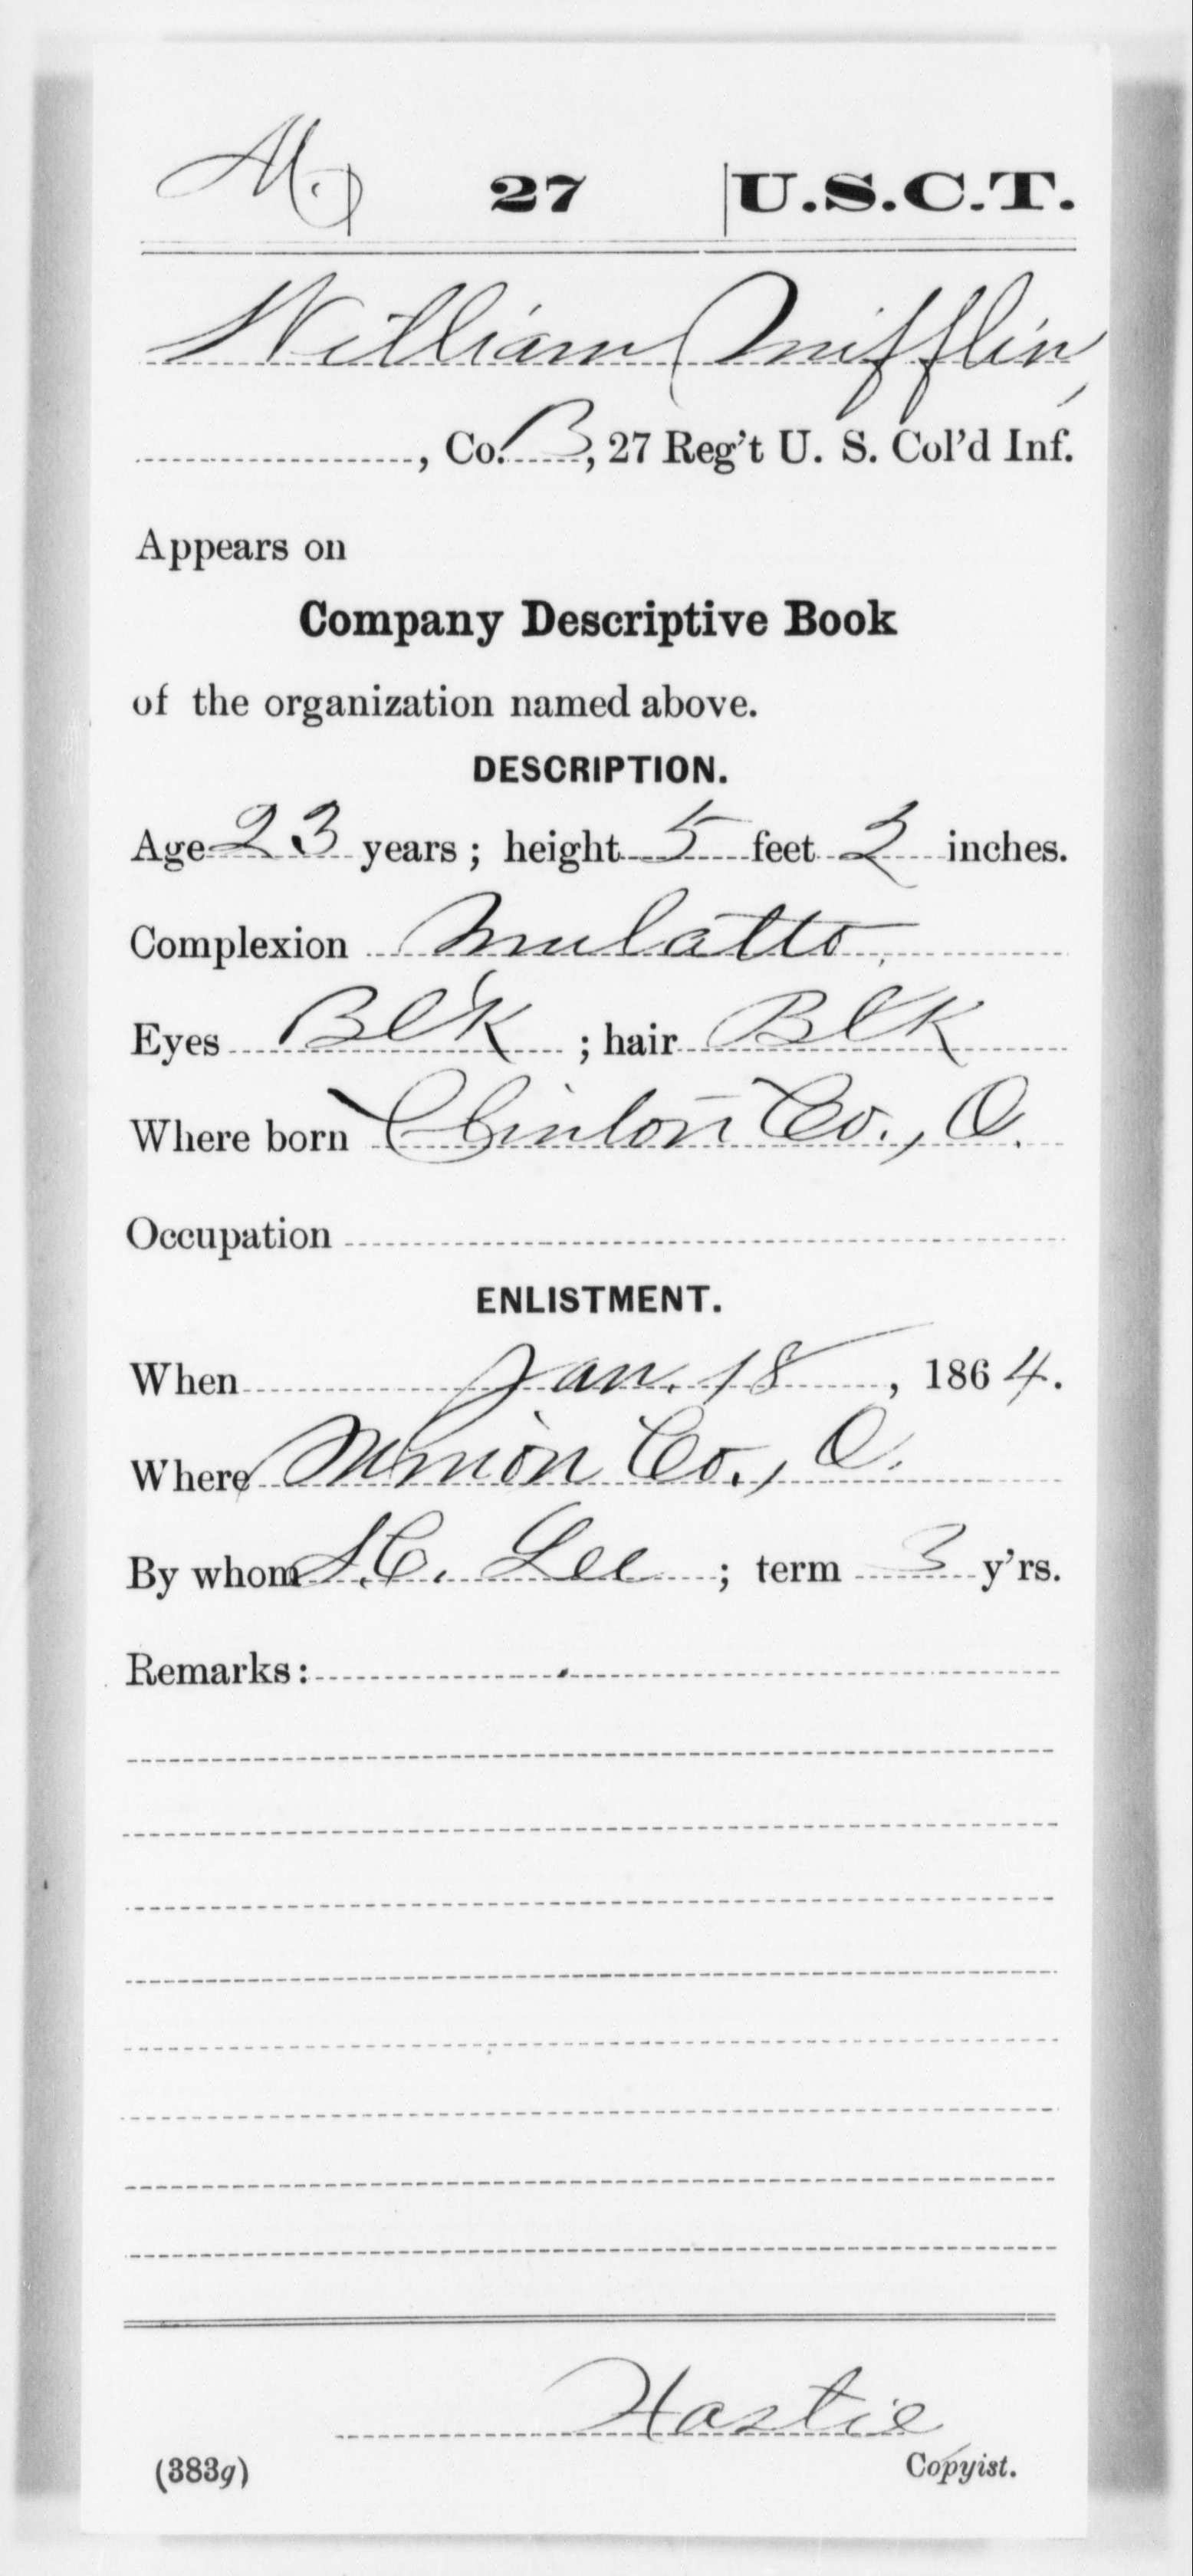 M. 27 U.S.C.T.
William Mifflin,
, Co. B, 27 Reg't U. S. Col'd Inf.
Appears on
Company Descriptive Book
of the organization named above.
DESCRIPTION.
Age 23 years; height 5 feet 2 inches.
Complexion Mulatto.
Eyes Blk; hair Blk
Where born Clinton Co., O.
Occupation
ENLISTMENT.
When Jan. 18, 1864.
Where Co., O.
By whom Lee; term 3 y'rs.
Remarks:
Hastie
(383g) Copyist.